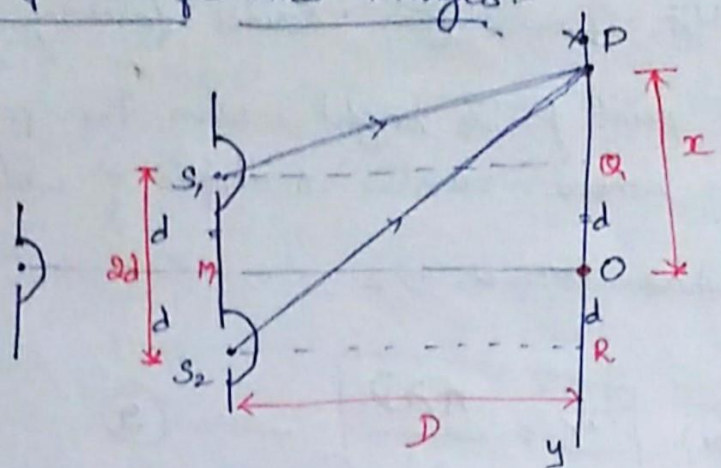 x P
S₁ Q x
d d
2d M O
d d
S₂ R
D
y